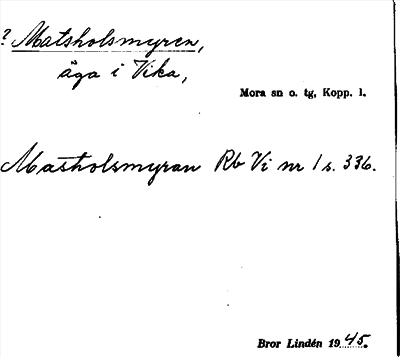 ? Matsholsmyren,
äga i Vika,
Mora sn o. tg, Kopp. l.
Mastholsmyran Rb Vi nr 1 s. 336.
Bror Lindén 1945.